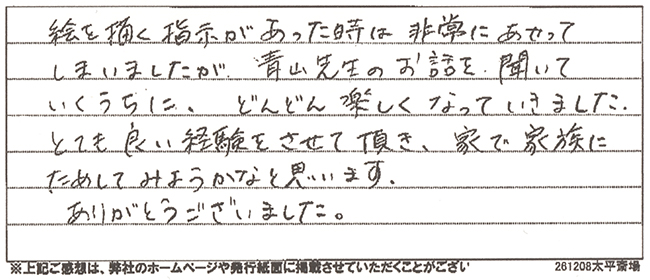 絵を描く指示があった時は非常にあせって
しまいましたが、青山先生のお話を聞いて
いくうちに、どんどん楽しくなっていきました.
とても良い経験をさせて頂き、家で家族に
ためしてみようかなと思います.
ありがとうございました。
※上記ご感想は、弊社のホームページや発行紙面に掲載させていただくことがござい
261208太平斎場